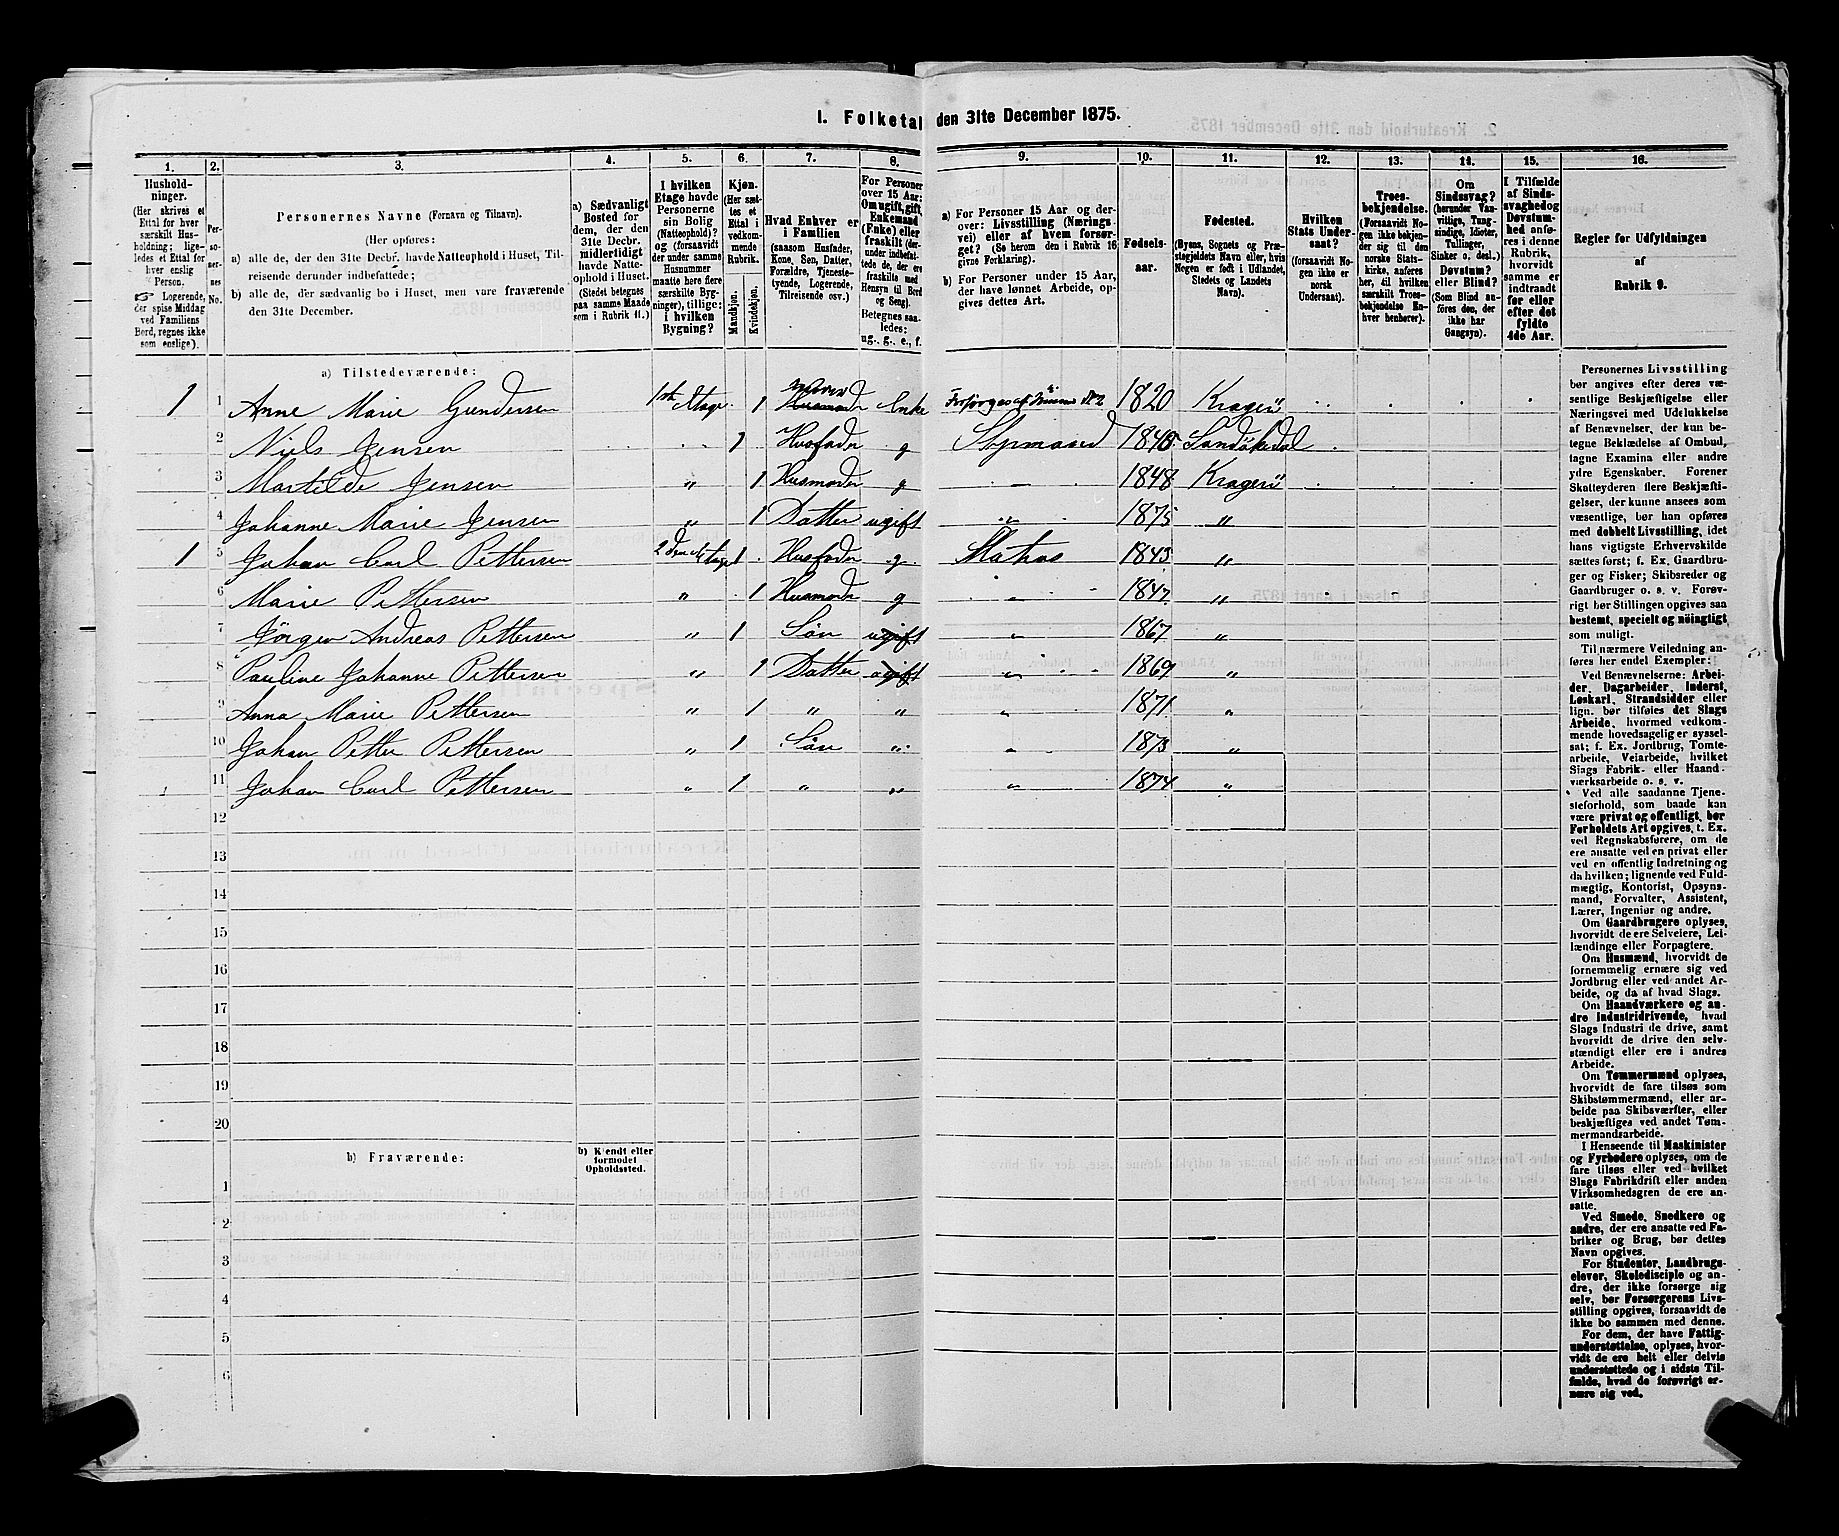 I. Folketal den 31te December 1875.
1. 2. 3. 4. 5. 6. 7. 8. 9. 10. 11. 12. 13. 14. 15. 16.
Husholdninger.
(Her skrives et
Ettal for hver
særskilt Hus-
holdning; lige-
ledes et Ettal for
hver enslig
Person.
☞ Logerende,
der spise Middag
ved Familiens
Bord, regnes ikke
som enslige).
Per-
so-
ner-
nes
No.
Personernes Navne (Fornavn og Tilnavn).
(Her opføres:
a) alle de, der den 31te Decbr. havde Natteophold i Huset, Til-
reisende derunder indbefattede;
b) alle de, der sædvanlig bo i Huset, men vare fraværende
den 31te December.
a) Sædvanligt
Bosted for
dem, der den
31te Decbr.
midlertidigt
havde Natte-
ophold i Huset.
(Stedet betegnes
paa samme Maade
som i Rubrik 11.)
I hvilken
Etage havde
Personerne
sin Bolig
(Natteophold)?
og (forsaavidt
der under samme
Husnummer
maatte høre flere
særskilte Byg-
ninger), tillige:
i hvilken
Bygning?
Kjøn.
(Her sæt-
tes et
Ettal i
vedkom-
mende
Rubrik.
Mandkjøn.
Kvindekjøn.
Hvad Enhver er
i Familien
(saasom Husfader,
Kone, Søn, Datter,
Forældre, Tjeneste-
tyende, Logerende,
Tilreisende osv.)
For Personer
over 15 Aar:
Om ugift, gift,
Enkemand
(Enke) eller
fraskilt (der-
under indbefat-
tede de, der ere
fraskilte med
Hensyn til Bord
og Seng).
Betegnes saa-
ledes:
ug., g., e., f.
a) For Personer 15 Aar og der-
over: Livsstilling (Nærings-
vei) eller af hvem forsør-
get? (Se herom den i Rubrik 16
givne Forklaring).
b) For Personer under 15 Aar,
der have lønnet Arbeide, op-
gives dettes Art.
Fødsels-
aar.
Fødested.
(Byens, Sognets og Præ-
stegjeldets Navn eller, hvis
Nogen er født i Udlandet,
Stedets og Landets
Navn).
Hvilken
Stats Under-
saat?
(forsaavidt No-
gen ikke er
norsk
Undersaat).
Troes-
bekjendelse.
(Forsaavidt No-
gen ikke bekjen-
der sig til den
norske Stats-
kirke, anføres
her, til hvilken
særskilt Troes-
bekjendelse En-
hver henhører).
Om
Sindssvag?
(herunder Van-
vittige, Tung-
sindige, Idioter,
Tullinger,
Sinker o. desl.)
Døvstum?
eller Blind?
(Som Blind an-
føres den, der
ikke har
Gangsyn).
I Tilfælde
af Sinds-
svaghed og
Døvstum-
hed anføres
i denne
Rubrik,
hvorvidt
samme er
indtraadt
før eller
efter det
fyldte
4de Aar.
Regler for Udfyldningen
af
Rubrik 9.
a) Tilstedeværende:
1 1 Anne Marie Gundersen 1ste Etage 1 Moder Enke 1820 Kragerö
2 Niels Jensen 1 Husfader g Styrmand 1845 Sandökedal
3 Martilde Jensen „ 1 Husmoder g 1848 Kragerö
4 Johanne Marie Jensen „ 1 Datter ugift „ 1875 „
1 5 Johan Carl Pettersen 2den Etage 1 Husfader g. Matros 1843 „
6 Marie Pettersen „ 1 Husmoder g „ 1847 „
7 Jörgen Andreas Pettersen „ 1 Sön ugift „ 1867 „
8 Pauline Johanne Pettersen „ 1 Datter ugift „ 1869 „
9 Anna Marie Pettersen „ 1 „ „ „ 1871 „
10 Johan Petter Pettersen „ 1 Sön „ „ 1873 „
11 Johan Carl Pettersen „ 1 „ „ „ 1874 „
12
13
14
15
16
17
18
19
20
b) Fraværende:
b) Kjendt eller
formodet
Opholdssted.
1
2
3
4
5
6
Personernes Livsstilling
bør angives efter deres væ-
sentlige Beskjæftigelse eller
Næringsvei med Udelukkelse
af Benævnelser, der kun be-
tegne Beklædelse af Ombud,
tagne Examina eller andre
ydre Egenskaber. Forener
Skatteyderen flere Beskjæfti-
gelser, der kunne ansees som
væsentlige, bør han opføres
med dobbelt Livsstilling, idet
hans vigtigste Erhvervskilde
sættes først; f. Ex. Gaardbru-
ger og Fisker; Skibsreder og
Gaardbruger o. s. v. Forøv-
rigt bør Stillingen opgives saa
bestemt, specielt og nøiagtigt
som muligt.
Til nærmere Veiledning an-
føres her endel Exempler:
Ved Benævnelserne: Arbei-
der, Dagarbeider, Inderst,
Løskarl, Strandsidder eller
lign. bør tilføies det Slags
Arbeide, hvormed vedkom-
mende hovedsagelig er syssel-
sat; f. Ex. Jordbrug, Tomte-
arbeide, Veiarbeide, hvilket
Slags Fabrik- eller Haand-
værksarbeide o. s. v.
Ved alle saadanne Tjene-
steforhold, som baade kan
være privat og offentligt, bør
Forholdets Art opgives, t. Ex.
ved Regnskabsførere, om de
ere ansatte ved en privat eller
ved en offentlig Indretning og
da hvilken; lignende ved Fuld-
mægtig, Kontorist, Opsyns-
mand, Forvalter, Assistent,
Lærer, Ingeniør og andre.
Om Gaardbrugere oplyses,
hvorvidt de ere Selveiere, Lei-
lændinge eller Forpagtere.
Om Husmænd, hvorvidt de
fornemmelig ernære sig ved
Jordbrug eller ved andet Ar-
beide, og da af hvad Slags.
Om Haandværkere og an-
dre Industridrivende, hvad
Slags Industri de drive, samt
hvorvidt de drive den selv-
stændigt eller ere i andres
Arbeide.
Om Tømmermænd oplyses,
hvorvidt de fare tilsøs som
Skibstømmermænd, eller ar-
beide paa Skibsværfter, eller
beskjæftiges ved andet Tøm-
mermandsarbeide.
I Henseende til Maskinister
og Fyrbødere oplyses, om de
fare tilsøs eller ved hvilket
Slags Fabrikdrift eller anden
Virksomhedsgren de ere an-
satte.
Ved Smede, Snedkere og
andre, der ere ansatte ved Fa-
briker og Brug, bør dettes
Navn opgives.
For Studenter, Landbrugs-
elever, Skoledisciple og an-
dre, der ikke forsørge sig
selv, bør Forsørgerens Livs-
stilling opgives, forsaavidt de
ikke bo sammen med denne.
For dem, der have Fattig-
understøttelse, oplyses, hvor-
vidt de ere helt eller delvis
understøttede og i sidste Til-
fælde, hvad de forøvrigt er-
nære sig ved.